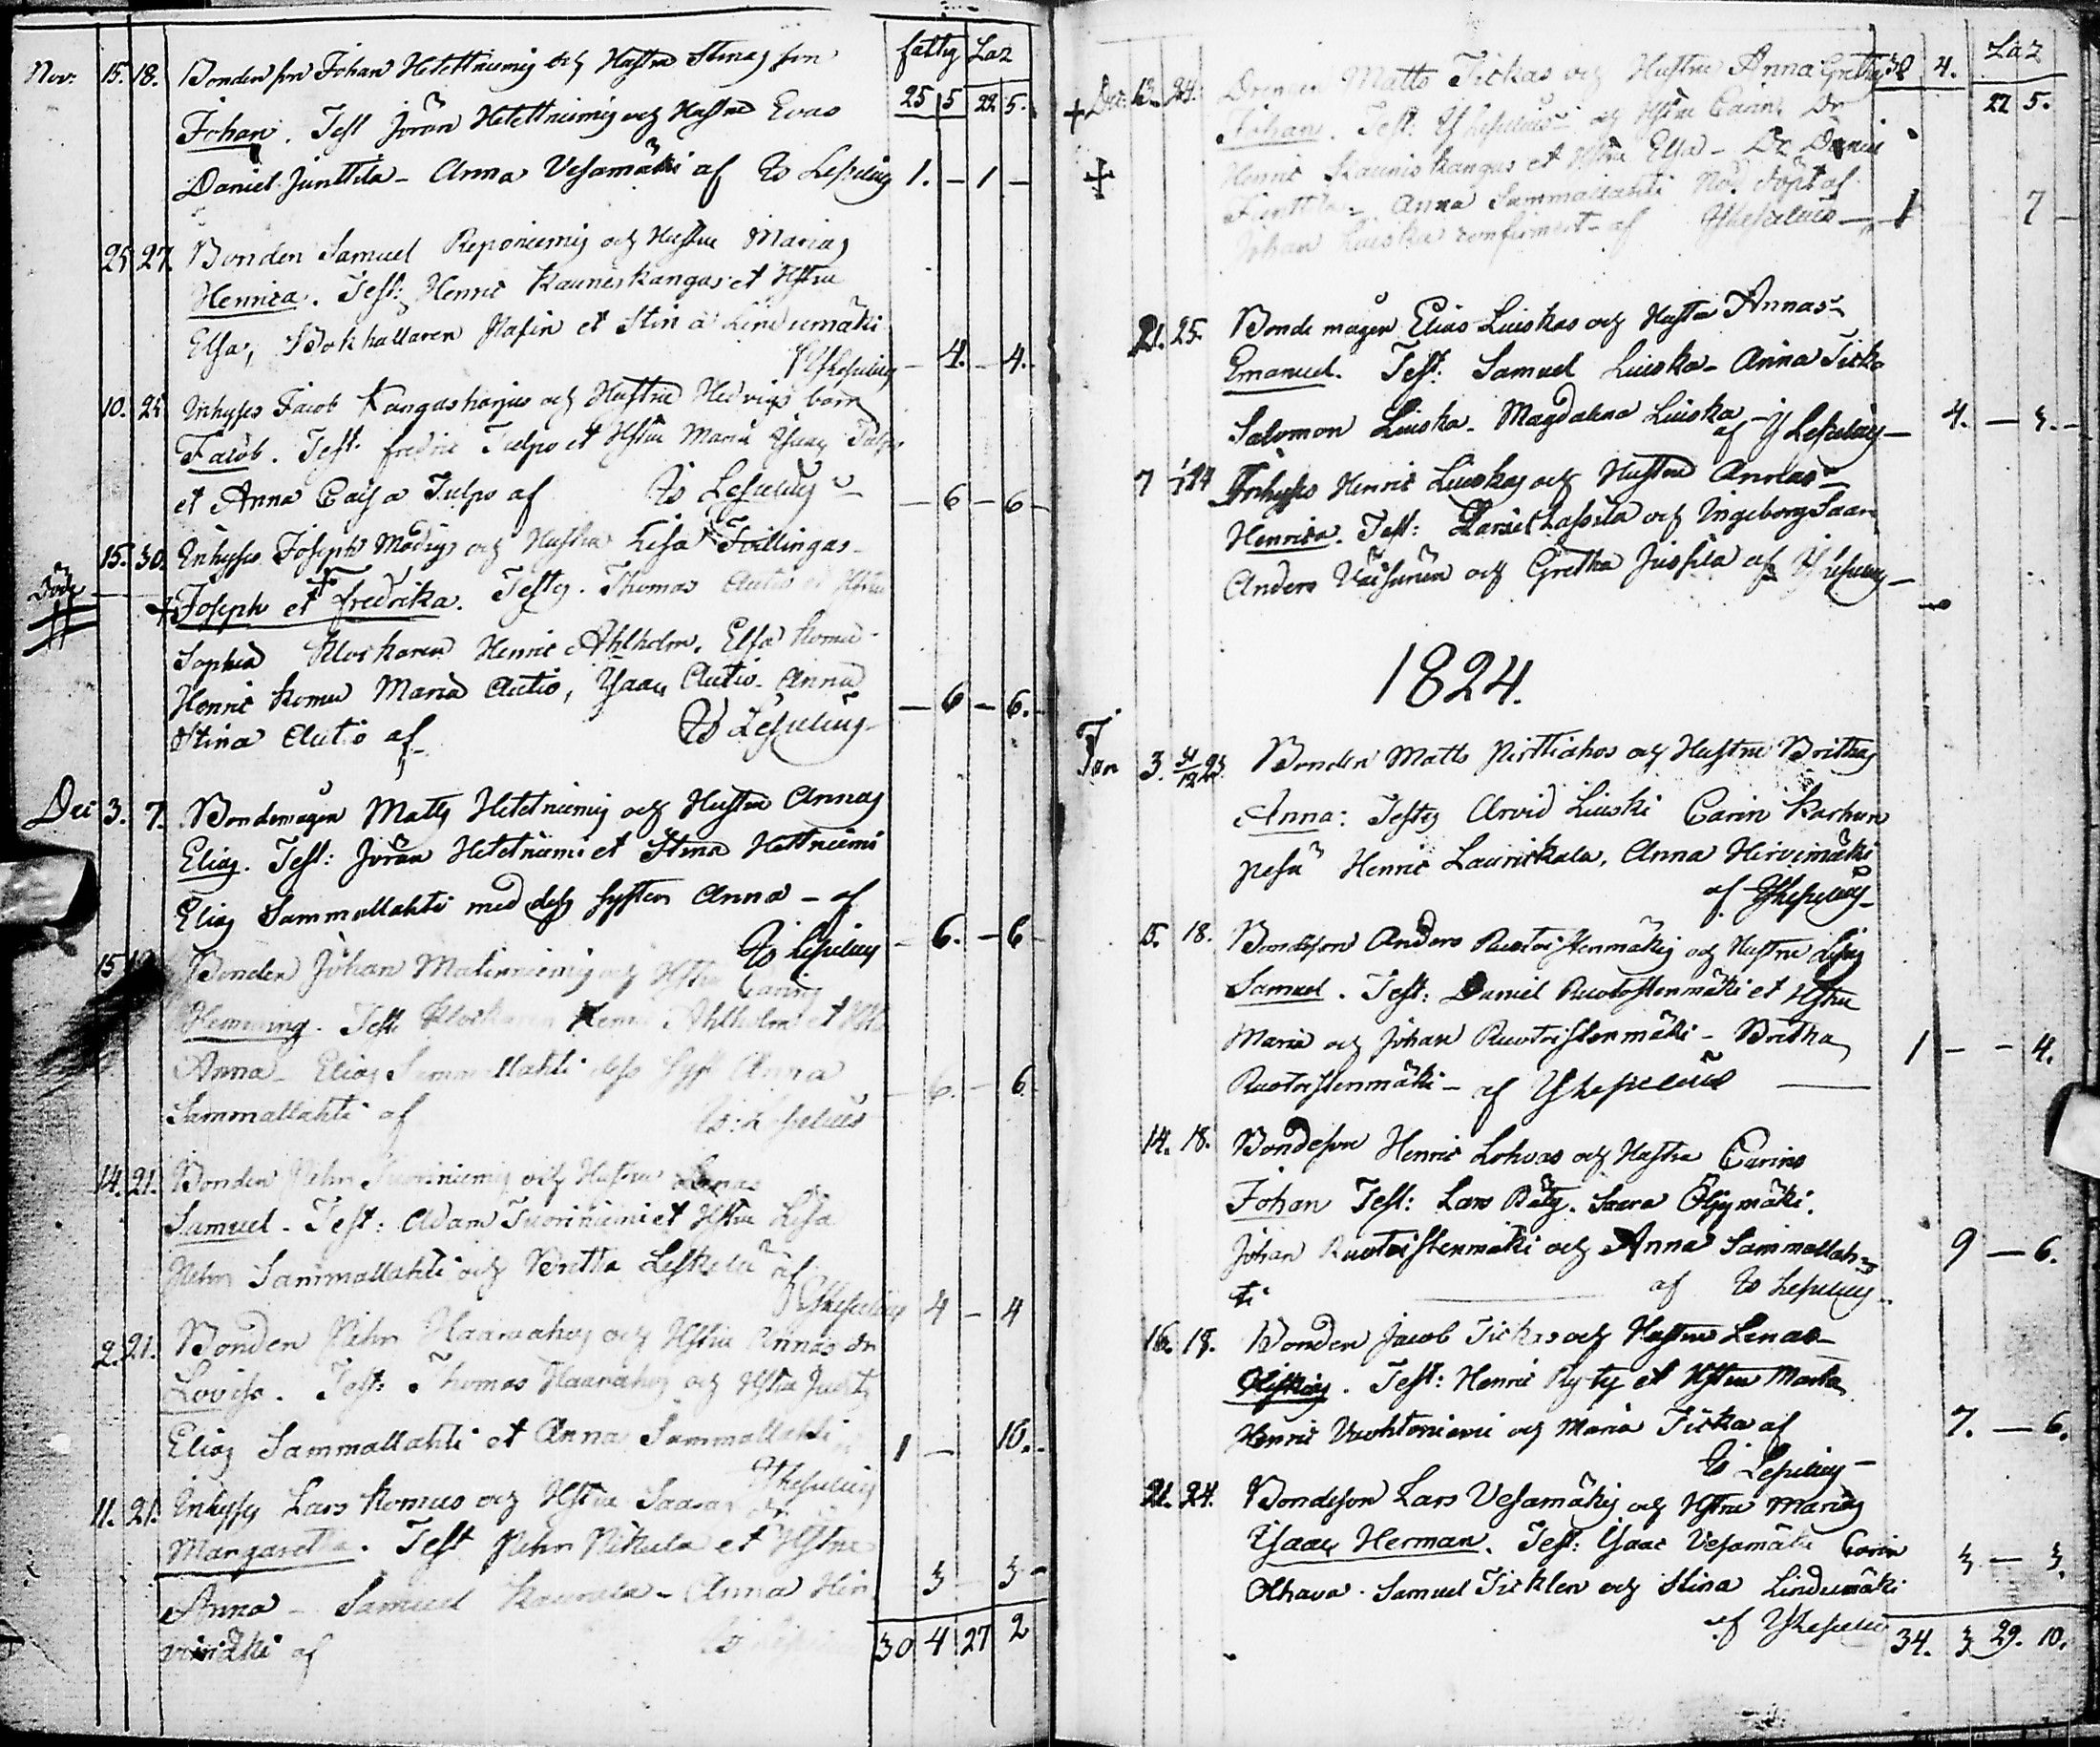 fattig Laz
Nov. 15. 18. Bondeson Johan Hetettniemis och Hustru Stinas son
25 5 22 5.
Johan. Test Jöran Hetettniemis och Hustru Evas
Daniel Junttila - Anna Vesamäki af Is Lesselius 1. - 1 -
25 27. Bonden Samuel Reponiemis och Hustru Marias
Henrica. Test: Henric Kauniskangas et Hstru
Elsa, Bokhallaren et Stina Lindumäki
4. - 4.
10. 25 Inhyses Jacob Kangasharjus och Hustru Hedvigs barn
Jacob. Test. Fredric Tulpo et Hstru Maria Isaac Tulpo
et Anna Caisa Tulpo af Is Lesselius - 6 - 6 -
15. 30. Inhyses Joseph Modigs och Hustru Lisa Tvillingar
+ Joseph et Fredrika. Testes. Thomas Autio et Hstru
Sophia Klockaren Henric Ahlholm, Elsa Komu
Henric Komu Maria Autio, Isaac Autio - Anna
Stina Autio af Is Lesselius - 6 - 6.
Dec 3. 7. Bondemågen Matts Hetetniemis och Hustru Annas
Elias. Test: Jöran Hetetniemi et Stina Hettniemi
Elias Sammallahti med dess syster Anna - af
Is Lesselius - 6. - 6
15 Bonden Johan Matinniemis och Hstru Carins
Hemming. Test Klockaren Henric Ahlholm et Hstru
Anna - Elias Sammallahti dess Syst Anna
6. - 6.
Sammallahti af Is: Lesselius
14. 21. Bonden Pehr Tuoriniemis och Hustru Lenas
Samuel - Test: Adam Tuoriniemi et Hstru Lisa
Pehr Sammallahti och Britta Leskelä af
Is Lesselius 4 - 4
2. 21. Bonden Pehr Haarahos och Hstru Annas dr
Lovisa. Test: Thomas Haarahos och Hstru
Elias Sammallahti et Anna Sammallahti
1 - 10.
Is Lesselius
11. 21. Inhyses Lars Komus och Hstru Saaras dr
Margaretta. Test Pehr Nikula et Hstru
3 - 3 -
Anna - Samuel Kaurala - Anna Hir
vimäki af
30 4 27 2
Laz
+ Dec: 13. 24. Drengen Matts Tickas och Hustru Anna Gretas 30 4.
22 5.
Johan. Test: Is Lesselius och Hstru Carin. Dr
Henric Kauniskangas et Hstru Elsa - Dr Daniel
Junttila - Anna Sammallahti Nöd döpt af
Johan Liuska confirmert - af Is Lesselius - 1 7 -
21. 25. Bonde mågen Elias Liuskas och Hustru Annas
Emanuel. Test: Samuel Liuska - Anna Ticka
Salomon Liuska - Magdalena Liuska af Is Lesselius - 4. - 3. -
7 Inhyses Henric Liuskas och Hustru Annas
Henrica. Test: Daniel Lassila och Ingeborg Saar
Anders Väisänen och Gretha Jussila af Is Lesselius -
1824.
Jan 3. 31/12 23. Bonden Matts Pirttiahos och Hustru Brithas
Anna: Testes Arvid Liuski Carin Karhun
pesä Henric Laurickala, Anna Hirvimäki
af Is Lesselius -
15. 18. Bondeson Anders Ruotoistenmäkis och Hustru Lisas
Samuel. Test: Daniel Ruotoistenmäki et Hstru
Maria och Johan Ruotoistenmäki - Britha
1 - - 4.
Ruotoistenmäki - af Is Lesselius
14. 18. Bondeson Henric Lohvas och Hustru Carins
Johan Test: Lars Rätz. Saara Öljymäki.
Johan Ruotoistenmäki och Anna Sammallah-
9 - 6.
ti af Is Lesselius -
16. 18. Bonden Jacob Tickas och Hustru Lenas -
. Test: Henric Ryty et Hstru Marta
Henric Vuohtoniemi och Maria Ticka af
7. - 6.
Is Lesselius -
21. 24. Bondeson Lars Vesamäkis och Hstru Marias
Isaac Herman. Test: Isaac Vesamäki Carin
3 - 3.
Olhava. Samuel Ticklen och Stina Lindumäki
af Is Lesselius
34. 3 29. 10.